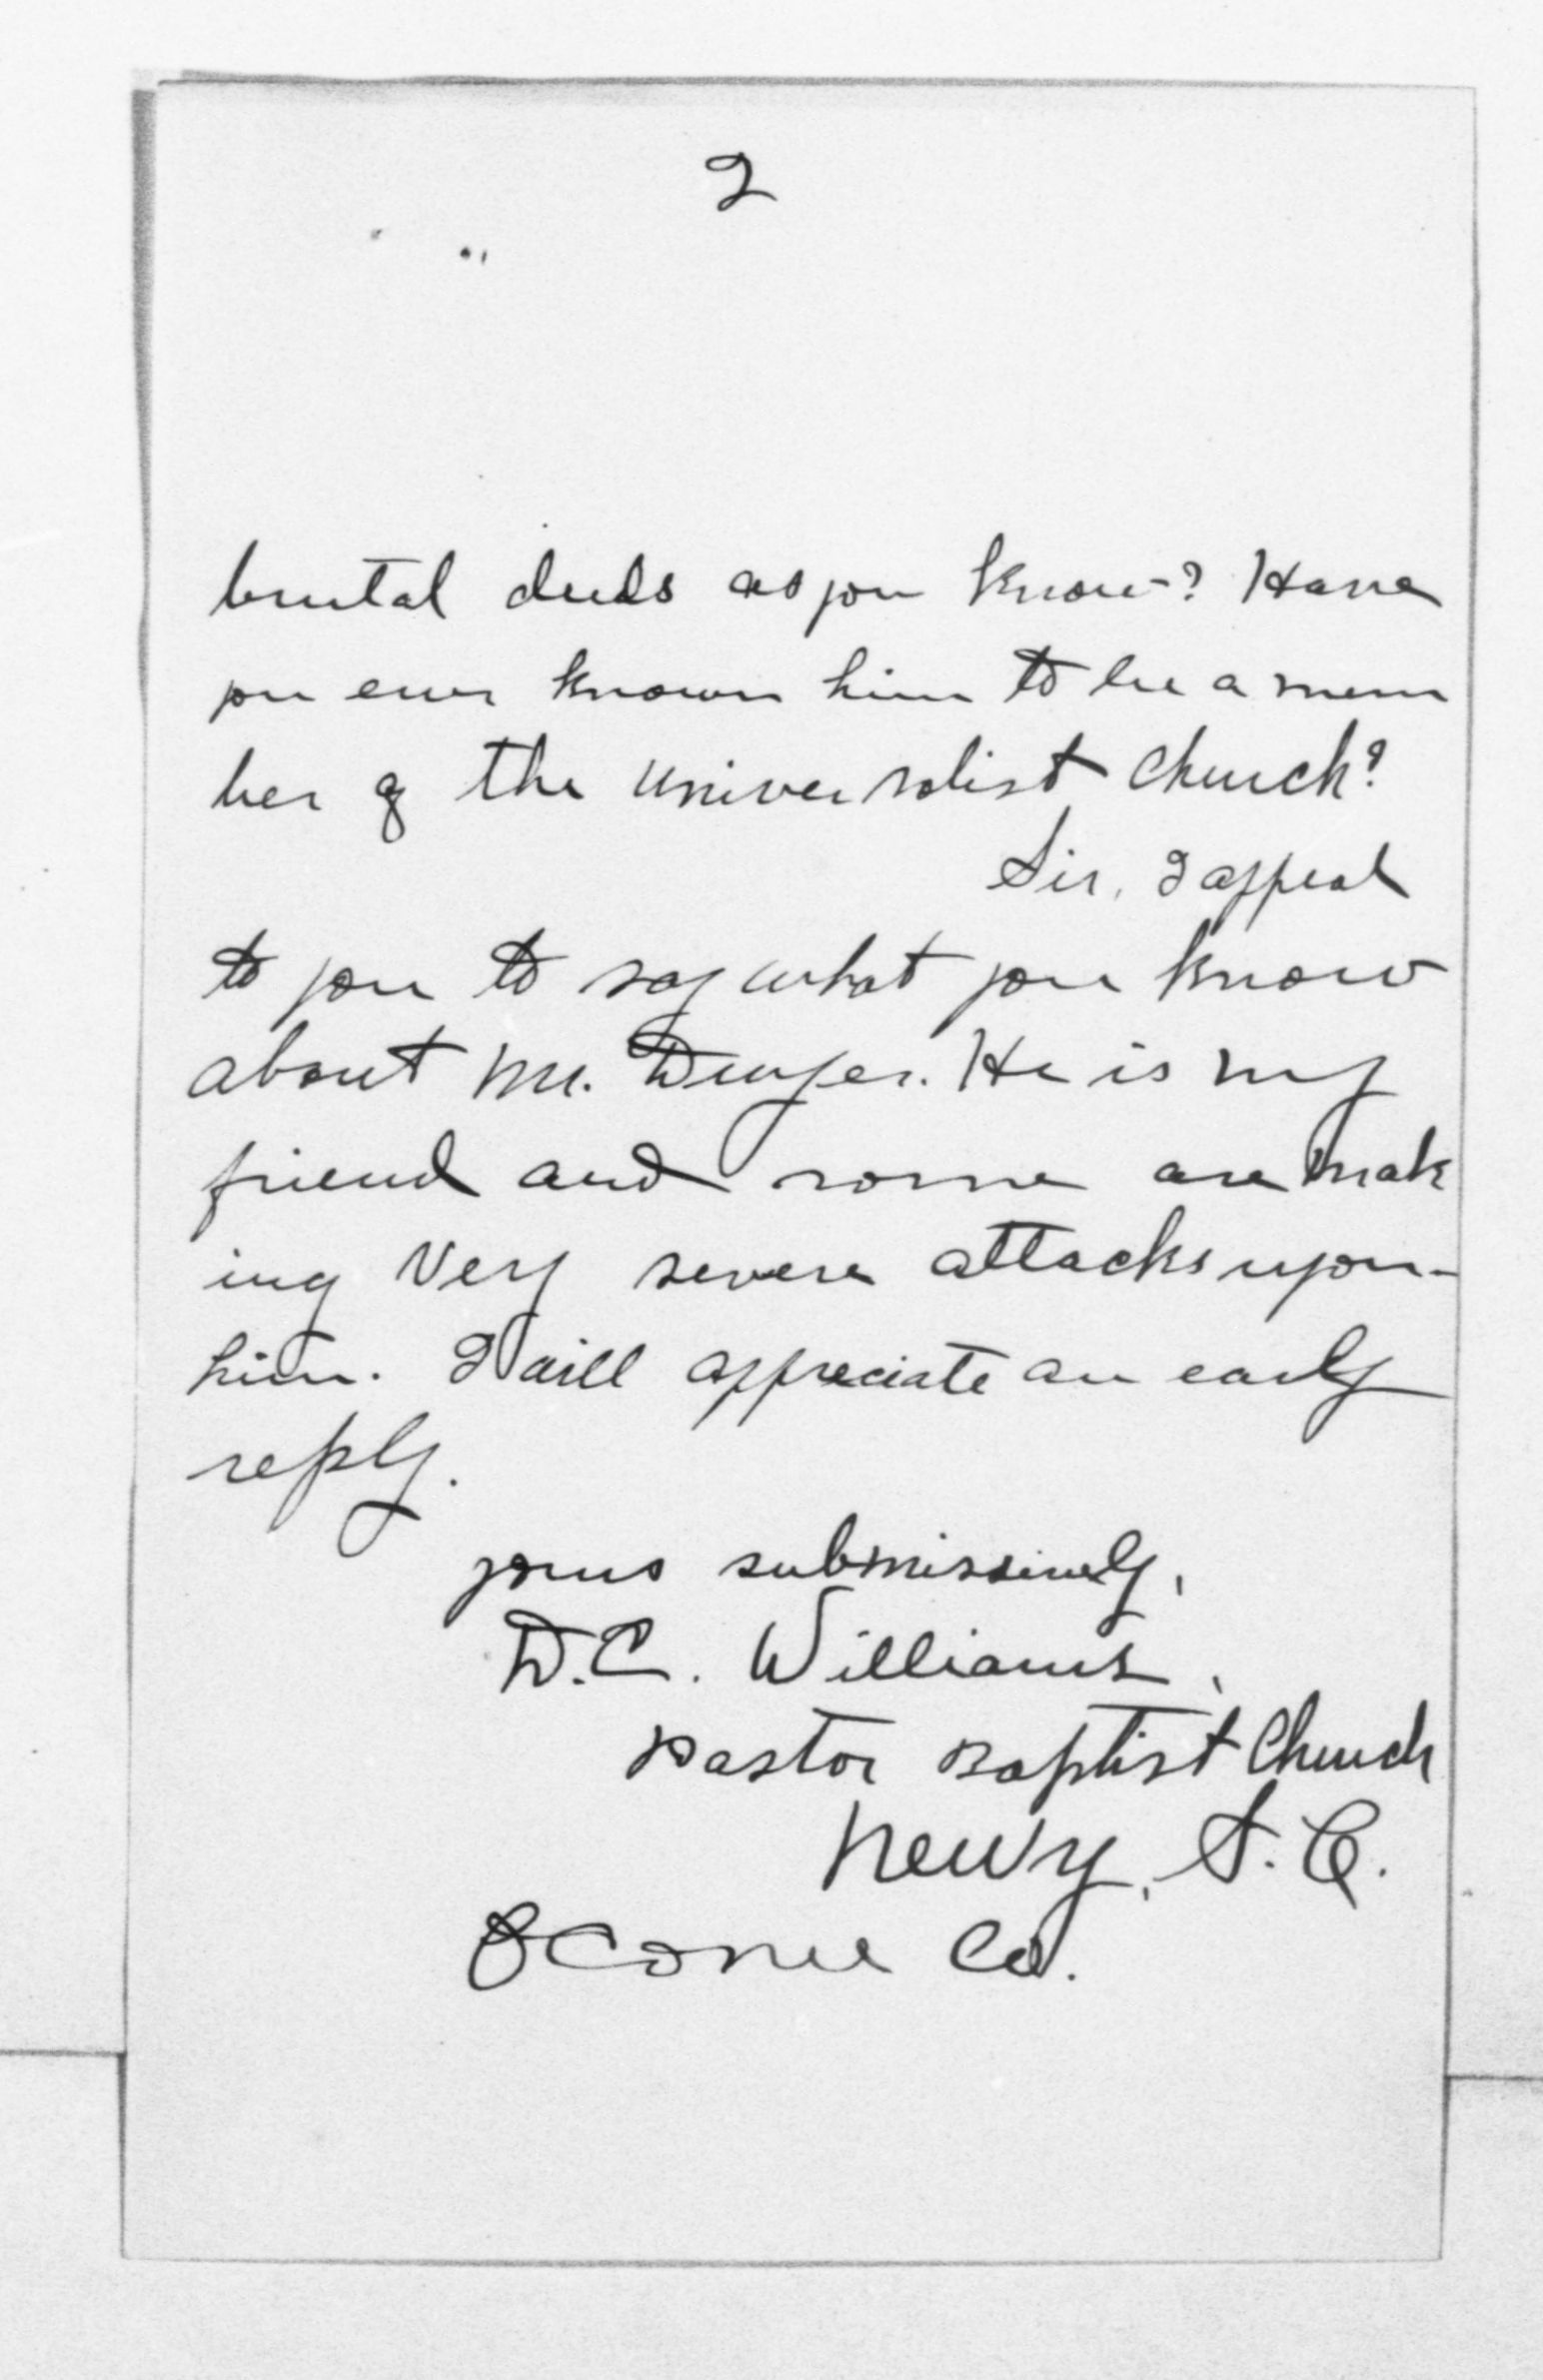 2
brutal deeds as you know? Have
you ever known him to be a mem
ber of the universalist Church?
Sir, I appeal
to you to say what you know
about Mr. Dwyer. He is my
friend and some are mak
ing very severe attacks upon
him. I will appreciate an early
reply.
yours submissively,
D.C. Williams,
Pastor Baptist Church
Newry, S.C.
Oconee Co.